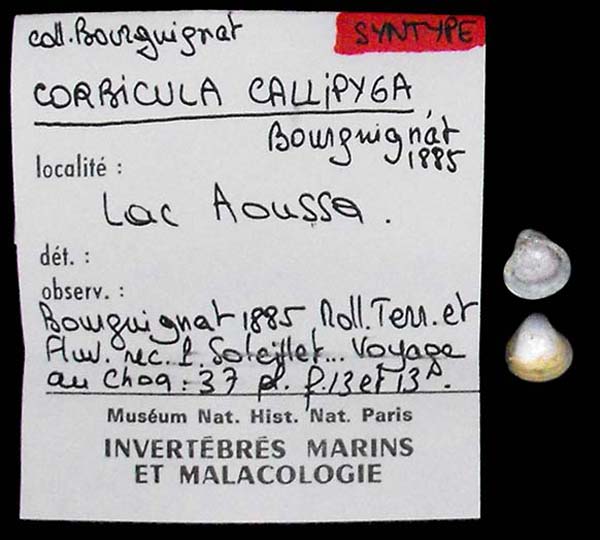 coll. Bourguignat
SYNTYPE
CORBICULA CALLIPYGA,
Bourguignat
1885
localité :
Lac Aoussa.
dét. :
observ. :
Bourguignat 1885 Moll. Terr. et
Fluv. rec. p. Soleillet... Voyage
au Choa : 37 pl. f. 13 et 13A.
Muséum Nat. Hist. Nat. Paris
INVERTÉBRÉS MARINS
ET MALACOLOGIE